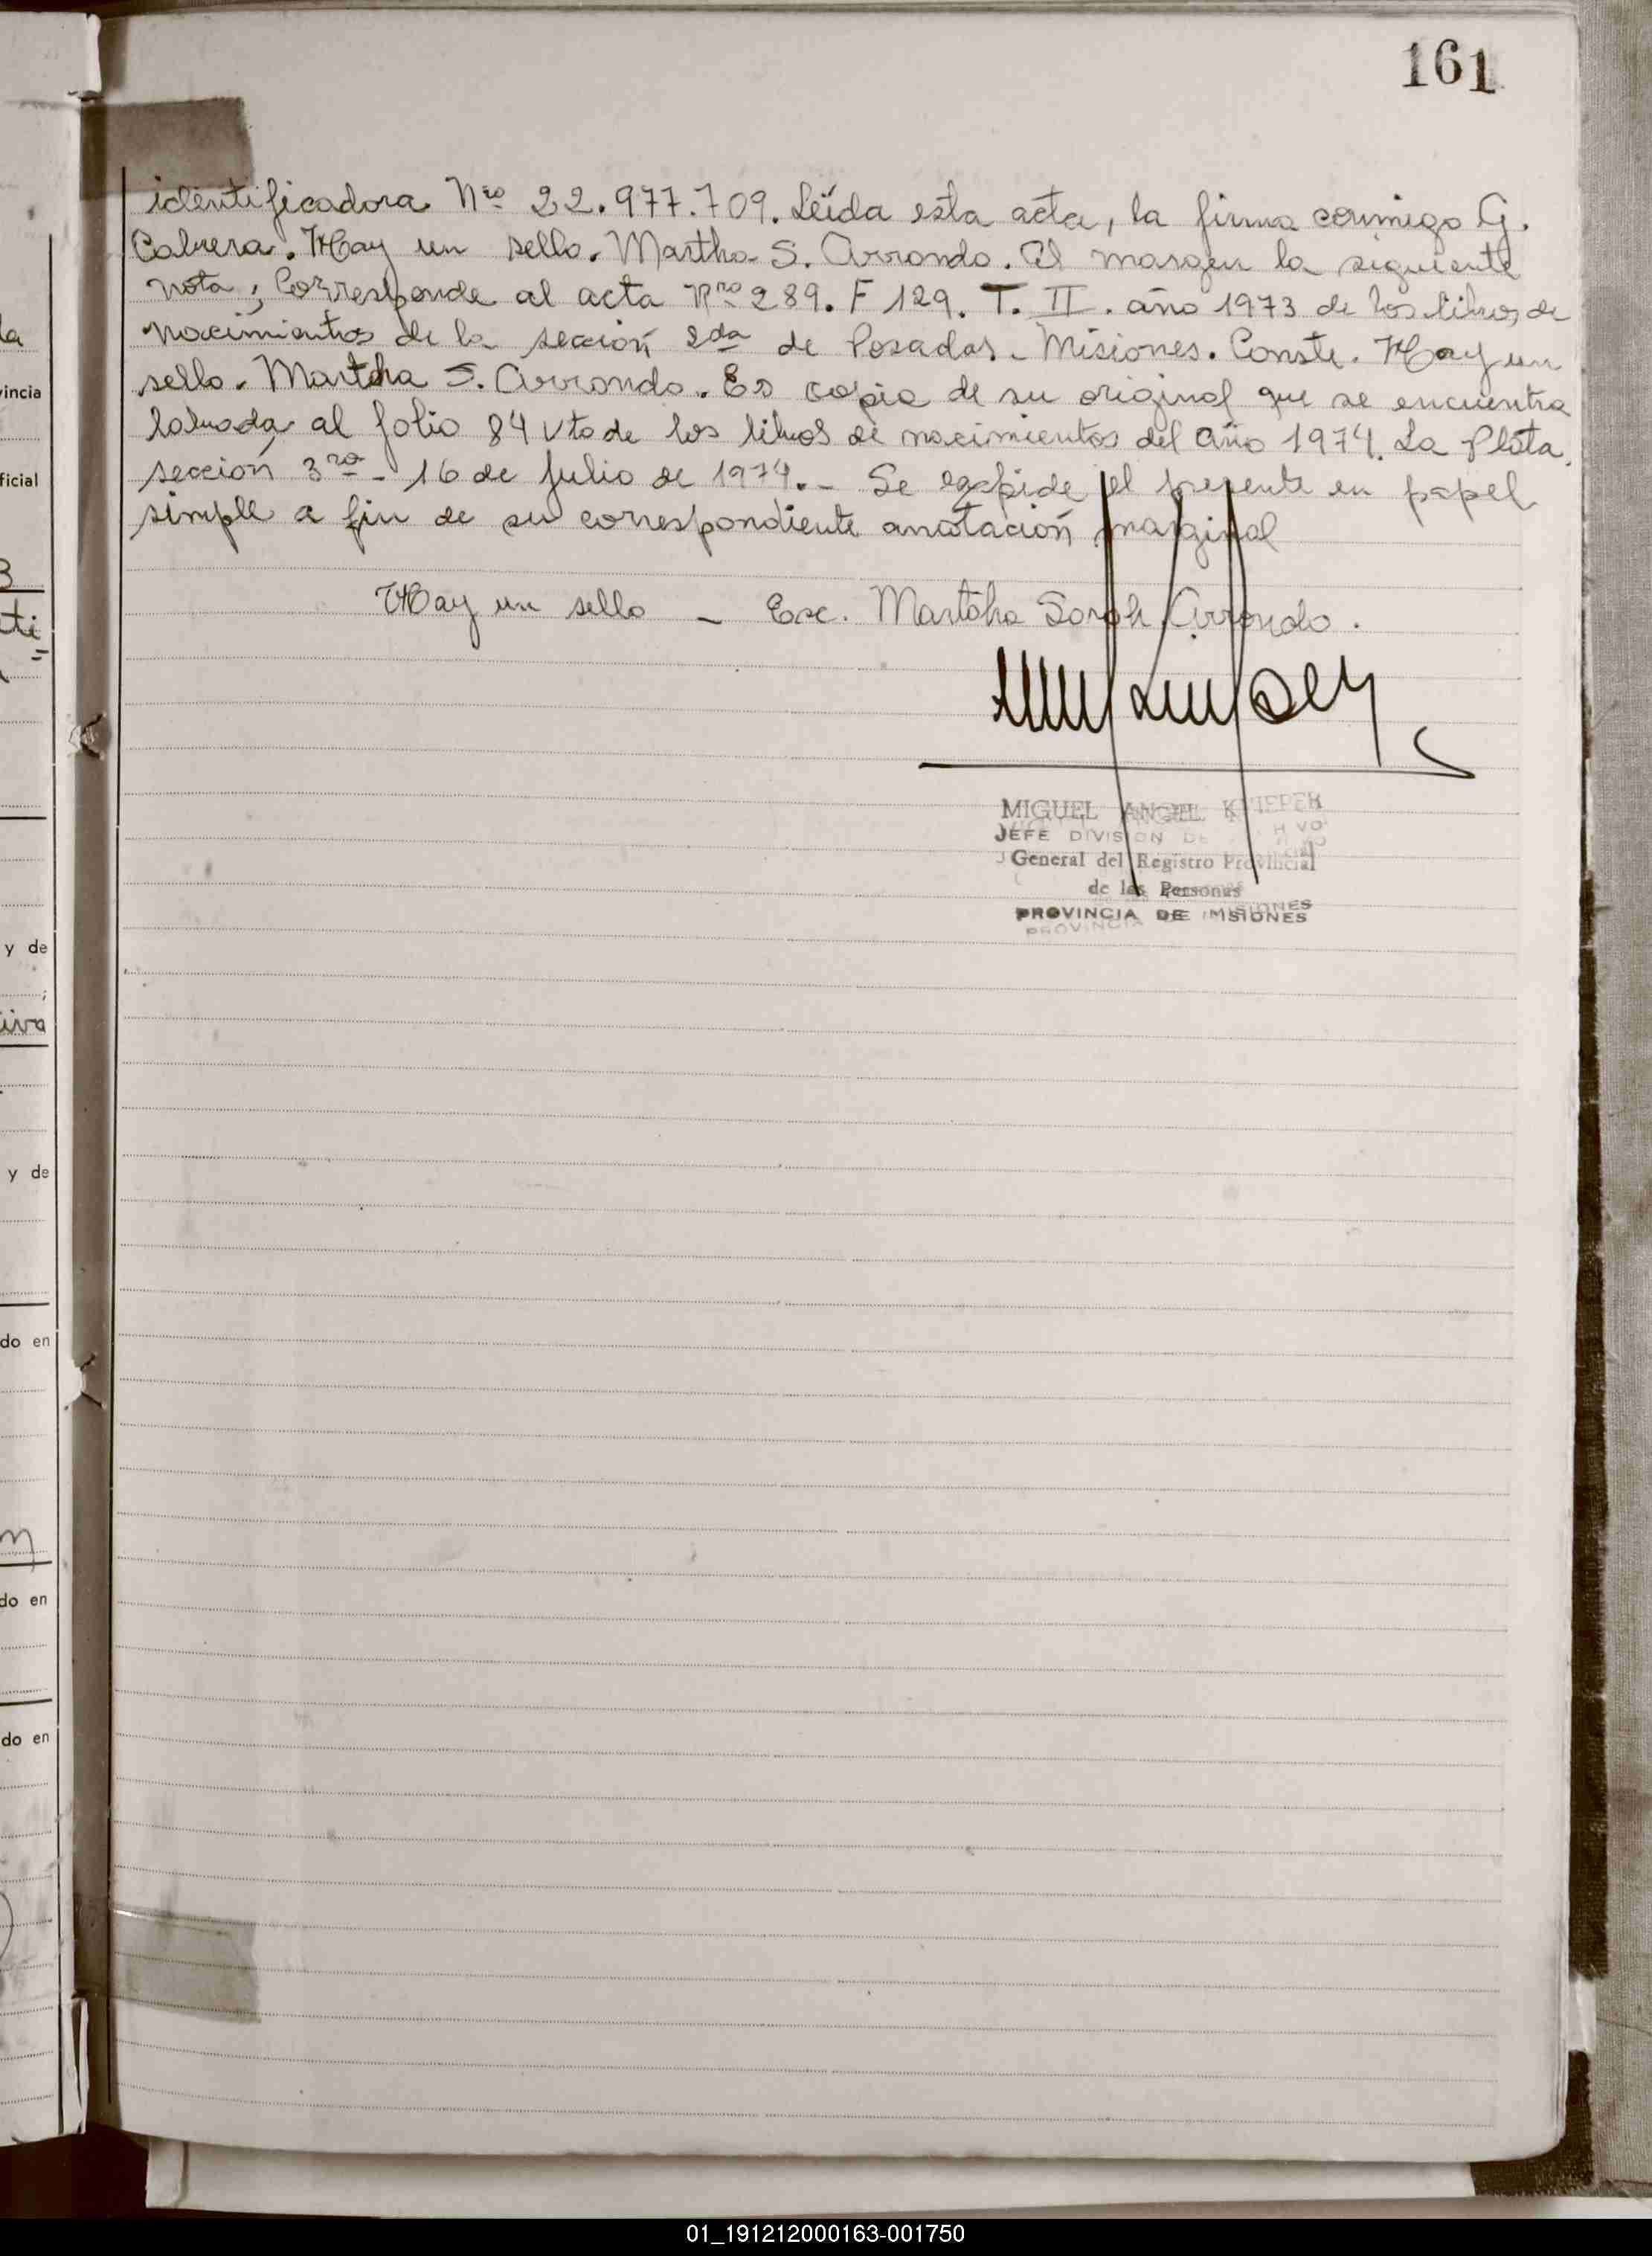 161
identificadora Nro 22.977.709. Leída esta acta, la firma conmigo G.
Cabrera. Hay un sello. Martha S. Arrondo. Al margen la siguiente
nota; Corresponde al acta Nro 289. F 129. T. II. año 1973 de los libros de
nacimientos de la sección 2da de Posadas - Misiones. Conste. Hay un
sello. Martha S. Arrondo. Es copia de su original que se encuentra
labrada al folio 84 vto de los libros de nacimientos del año 1974. La Plata,
sección 3ra - 16 de Julio de 1974. - Se expide el presente en papel
simple a fin de su correspondiente anotación marginal
Hay un sello - Esc. Martha Sarah Arrondo.
MIGUEL ANGEL
JEFE DIVISION DE
General del Registro Provincial
de las Personas
PROVINCIA DE MISIONES
la
vincia
ficial
3
ti
y de
iva
y de
do en
m
do en
do en
01_191212000163-001750